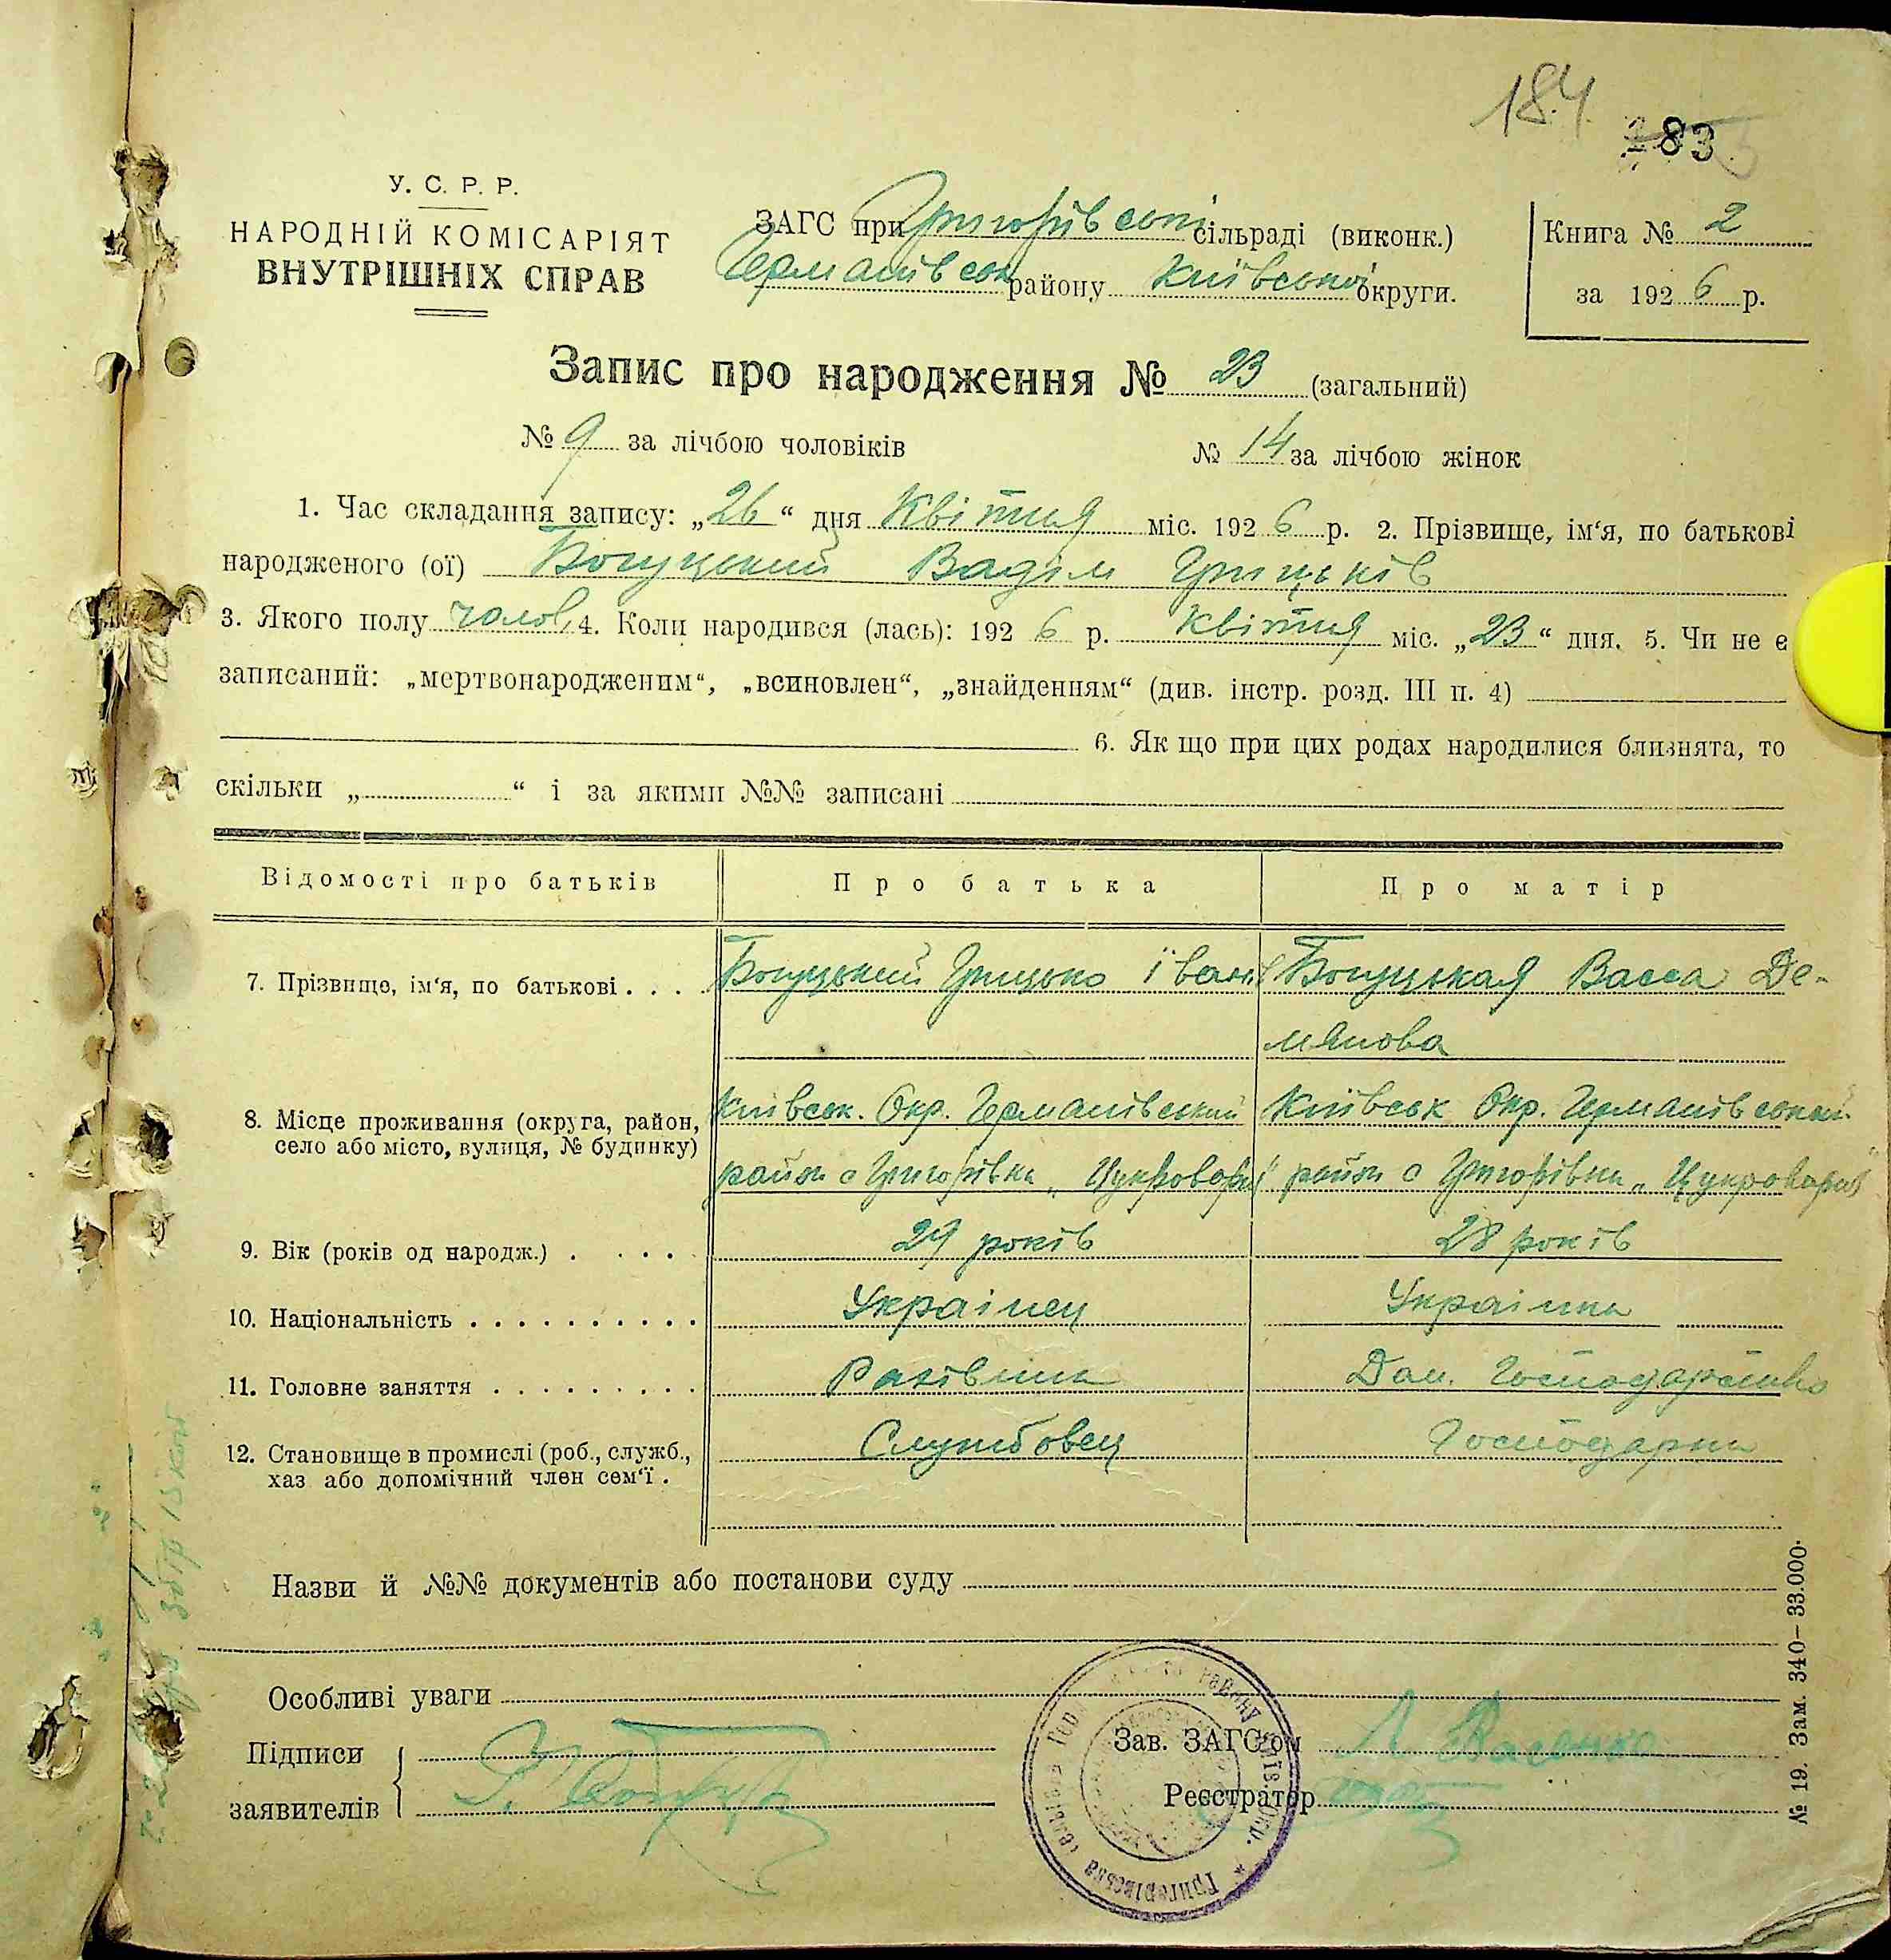 184
283
У. С. Р. Р.
НАРОДНІЙ КОМІСАРІЯТ
ВНУТРІШНІХ СПРАВ
ЗАГС при Григорівській сільраді (виконк.)
Германівськ району Київської округи.
Книга № 2
за 1926 р.
Запис про народження № 23 (загальний)
№ 9 за лічбою чоловіків № 14 за лічбою жінок
1. Час складання запису: „26“ дня Квітня міс. 1926 р. 2. Прізвище, ім‘я, по батькові
народженого (ої) Богуцький Вадім Грицьків
3. Якого полу чолов. 4. Коли народився (лась): 1926 р. Квітня міс. „23“ дня. 5. Чи не є
записаний: „мертвонародженим“, „всиновлен“, „знайденням“ (див. інстр. розд. III п. 4)
6. Як що при цих родах народилися близнята, то
скільки „ “ і за якими №№ записані
Відомості про батьків Про батька Про матір
7. Прізвище, ім‘я, по батькові . . . Богуцький Грицько Іван Богуцькая Васса Де-
мянова
8. Місце проживання (округа, район, село або місто, вулиця, № будинку) Київськ. Окр. Германівський Київськ Окр. Германівський
район с Григорівка „Цукроварня“ район с Григорівка „Цукроварня“
9. Вік (років од народж.) . . . . 29 років 28 років
10. Національність . . . . . . . . . . Українец Українка
11. Головне заняття . . . . . . . . . Рахівник Дом. Господарство
12. Становище в промислі (роб., служб., Службовец Господарка
хаз або допомічний член сем‘ї .
Назви й №№ документів або постанови суду
Особливі уваги
Підписи
заявителів
Зав. ЗАГС‘ом
Реєстратор
№ 19. Зам. 340–33.000.